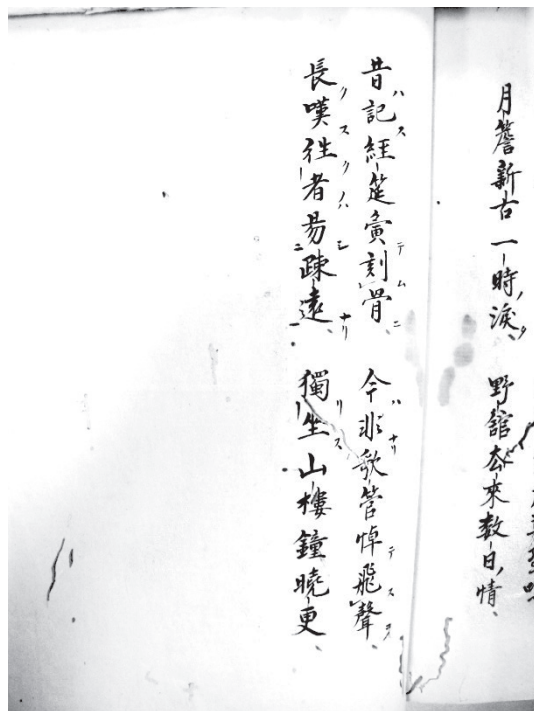 月簷新古一時涙 野舘去來数日情
昔記経筵夤刻骨 今非歌管悼飛聲
長嘆往者易踈遠 獨坐山樓鐘曉更